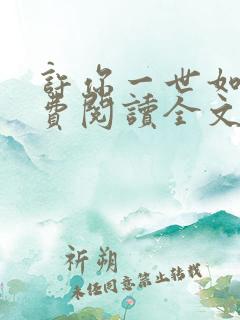 許你一世如
費閱讀全文
祈朔
未经同意禁止转载